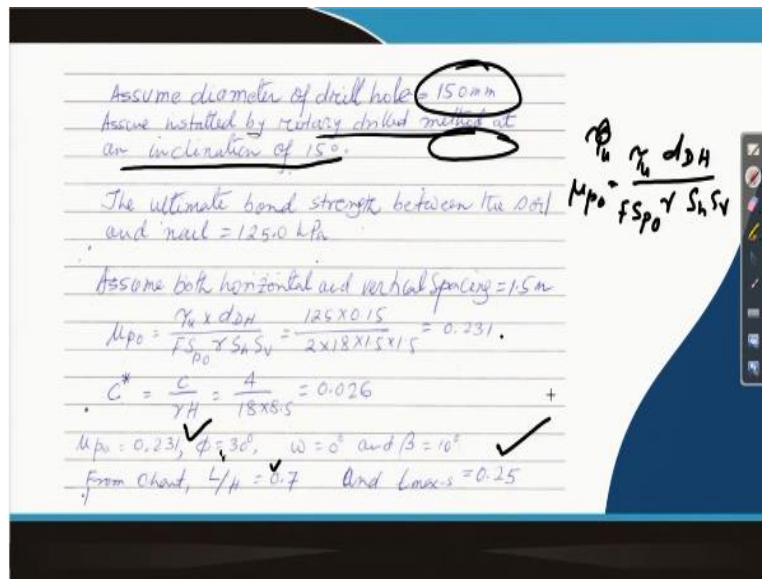 Assume diameter of drill hole = 150mm
Assume installed by rotary drilled method at
an inclination of 15°.
The ultimate bond strength between the soil
and nail = 125.0 kPa
Assume both horizontal and vertical spacing = 1.5m
μpo = τu x dDH / FSpo γ Sh Sv = 125 x 0.15 / 2 x 18 x 1.5 x 1.5 = 0.231.
C* = c / γH = 4 / 18 x 8.5 = 0.026
μpo = 0.231, φ = 30°, ω = 0° and β = 10°
From Chart, L/H = 0.7 And Lmax-s = 0.25
μpo = τu dDH / FSpo γ Sh Sv